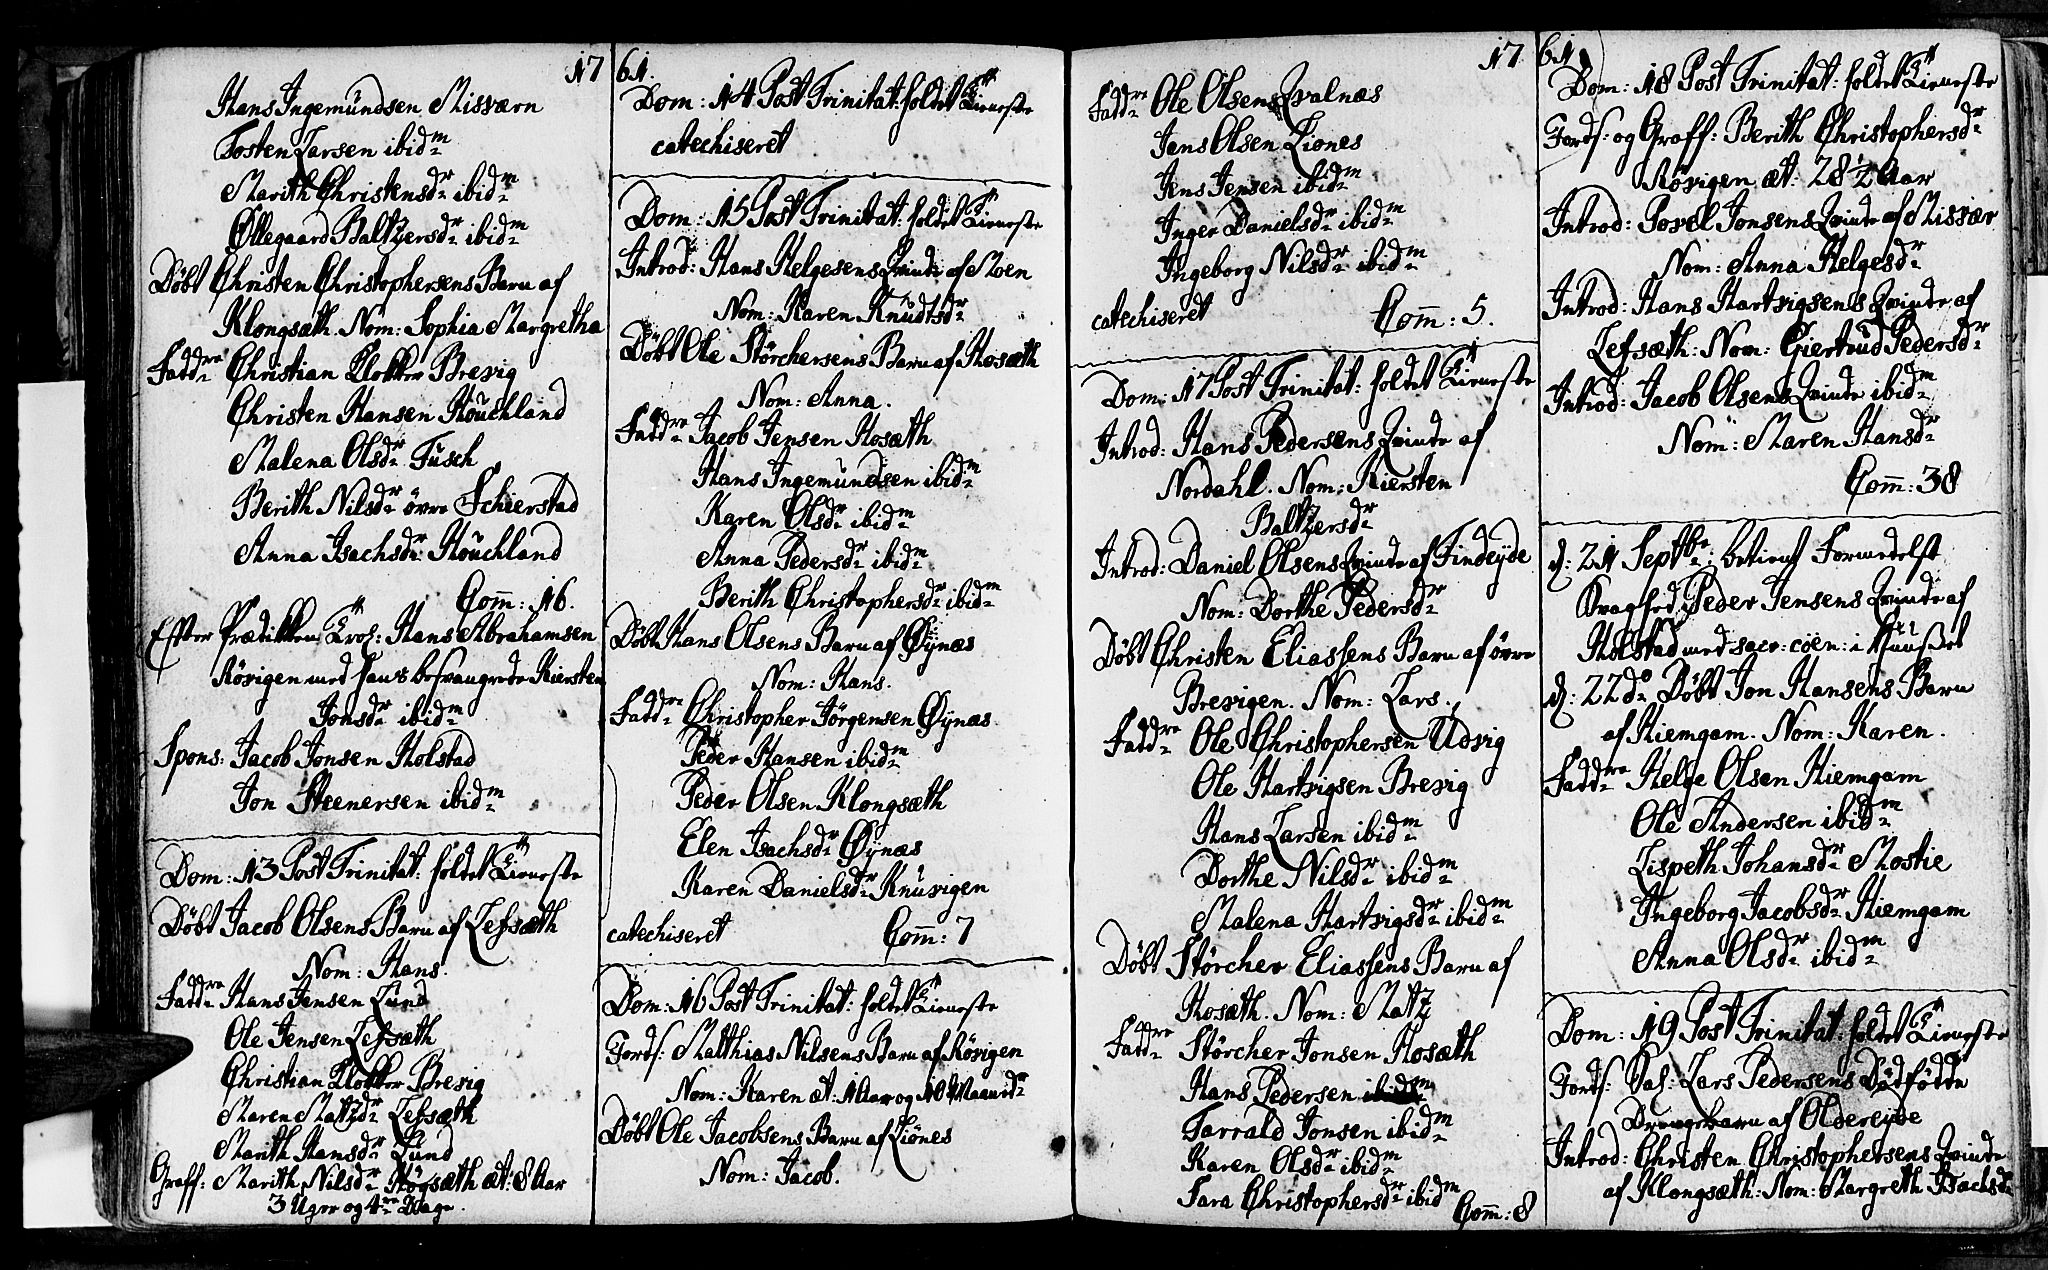 1761.
Hans Ingemundsen Misværn
Tosten Larsen ibidm
Marith Christensdr ibidm
Øllegaard Baltzersdr ibidm
Döbt Christen Christophersens Barn af
Klongsæth. Nom: Sophia Margretha
Faddre Christian Klokker Brevig
Christen Hansen Houchland
Malena Olsdr Fusch
Berith Nilsdr övre Schierstad
Anna Isachsdr Houchland
Com̄: 16.
Efter Prædikken Trol: Hans Abrahamsen
Rövigen med hans besvangrede Kiersten
Jonsdr ibidm
Spons: Jacob Jonsen Holstad
Jon Steenersen ibidm
Dom: 13 Post Trinitat: holdet Tieneste
Döbt Jacob Olsens Barn af Lefsæth
Nom: Hans.
Faddre Hans Jensen Lund
Ole Jensen Lefsæth
Christian Klokker Brevig
Maren Matzdr Lefsæth
Marith Hansdr Lund
Graff: Marith Nilsdr Högsæth æt: 8 Aar
3 Uger og 4re Dage.
Dom: 14 Post Trinitat: holdet Tieneste
catechiseret
Dom: 15 Post Trinitat: holdet Tieneste
Introd: Hans Helgesens Qvinde af Moen
Nom: Karen Knudtsdr
Döbt Ole Störchersens Barn af Hosæth
Nom: Anna.
Faddre Jacob Jensen Hosæth
Hans Ingemundsen ibidm
Karen Olsdr ibidm
Anna Pedersdr ibidm
Berith Christophersdr ibidm
Döbt Hans Olsens Barn af Øynæs
Nom: Hans.
Faddre Christopher Jörgensen Øynæs
Peder Hansen ibidm
Peder Olsen Klongsæth
Elen Isachsdr Øynæs
Karen Danielsdr Knuvigen
catechiseret Com̄: 7
Dom: 16 Post Trinitat: holdet Tieneste
Jords: Matthias Nilsens Barn af Rövigen
Nom: Karen æt: 1 Aar og 10 Maander
Döbt Ole Jacobsens Barn af Liönes
Nom: Jacob.
1761.
Faddre Ole Olsen Qvalnæs
Jens Olsen Liones
Jens Jensen ibidm
Inger Danielsdr ibidm
Ingeborg Nilsdr ibidm
catechiseret Com̄: 5.
Dom: 17 Post Trinitat: holdet Tieneste
Introd: Hans Pedersens Qvinde af
Nordahl. Nom: Kiersten
Baltzersdr
Introd: Daniel Olsens Qvinde af Findeyde
Nom: Dorthe Pedersdr
Döbt Christen Eliassens Barn af övre
Brevigen. Nom: Lars.
Faddre Ole Christophersen Udvig
Ole Hartvigsen Brevig
Hans Larsen ibidm
Dorthe Nilsdr ibidm
Malena Hartvigsdr ibidm
Döbt Störcher Eliassens Barn af
Hosæth. Nom: Matz
Faddre Störcher Jonsen Hosæth
Hans Pedersen ibidm
Tarrald Jonsen ibidm
Karen Olsdr ibidm
Tara Christophersdr ibidm Com̄: 8
Dom: 18 Post Trinitat: holdet Tieneste
Jords: og Graff: Berith Christophersdr
Rövigen æt: 28½ Aar
Introd: Povel Jonsens Qvinde af Misvær
Nom: Anna Helgesdr
Introd: Hans Hartvigsens Qvinde af
Lefsæth: Nom: Giertrud Pedersdr
Introd: Jacob Olsens Qvinde ibidm
Nom: Maren Hansdr
Com̄: 38
d: 21 Septbr: betient Formedelst
Svaghed Peder Jensens Qvinde af
Holstad med sacr: cœn: i Huuset
d: 22do Döbt Jon Hansens Barn
af Hiemgam. Nom: Karen.
Faddre Helge Olsen Hiemgam
Ole Andersen ibidm
Lispeth Johansdr Mostie
Ingeborg Jacobsdr Hiemgam
Anna Olsdr ibidm
Dom: 19 Post Trinitat: holdet Tieneste
Jords: Sal: Lars Pedersens Dödfödde
Drengebarn af Oldereyde
Introd: Christen Christophersens Qvinde
af Klongsæth: Nom: Margreth Isachsdr